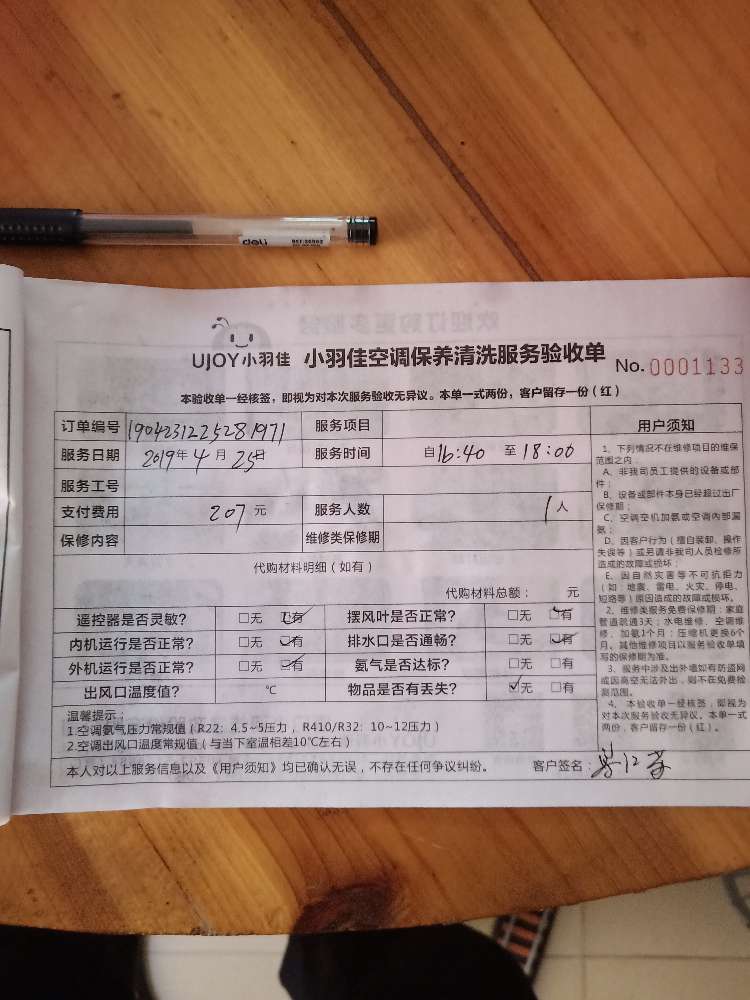 deli
UJOY小羽佳 小羽佳空调保养清洗服务验收单 No.0001133
本验收单一经核签，即视为对本次服务验收无异议。本单一式两份，客户留存一份（红）
订单编号 1904231225281971 服务项目
服务日期 2019年4月25日 服务时间 自16:40 至18:00
服务工号
支付费用 207元 服务人数 1人
保修内容 维修类保修期
代购材料明细（如有）
代购材料总额： 元
遥控器是否灵敏? □无 ☑有 摆风叶是否正常? □无 ☑有
内机运行是否正常? □无 ☑有 排水口是否通畅? □无 ☑有
外机运行是否正常? □无 ☑有 氨气是否达标? □无 □有
出风口温度值? ℃ 物品是否有丢失? ☑无 □有
温馨提示：
1.空调氨气压力常规值（R22：4.5~5压力，R410/R32：10~12压力）
2.空调出风口温度常规值（与当下室温相差10℃左右）
本人对以上服务信息以及《用户须知》均已确认无误，不存在任何争议纠纷。 客户签名：
用户须知
1、下列情况不在维修项目的维保
范围之内：
A、非我司员工提供的设备或部
件；
B、设备或部件本身已经超过出厂
保修期；
C、空调空机加氨或空调内部漏
氨；
D、因客户行为（擅自装卸、操作
失误等）或另请非我司人员检修所
造成的故障或损坏；
E、因自然灾害等不可抗拒力
（如：地震、雷电、火灾、停电、
短路等）原因造成的故障或损坏。
2、维修类服务免费保修期：家庭
管道疏通3天；水电维修、空调维
修、加氨1个月；压缩机更换6个
月。其他维修项目以服务验收单填
写的保修期为准。
3、服务中涉及出外墙如有防盗网
或因高空无法外出，则不在免费检
测范围。
4、本验收单一经核签，即视为
对本次服务验收无异议。本单一式
两份，客户留存一份（红）。